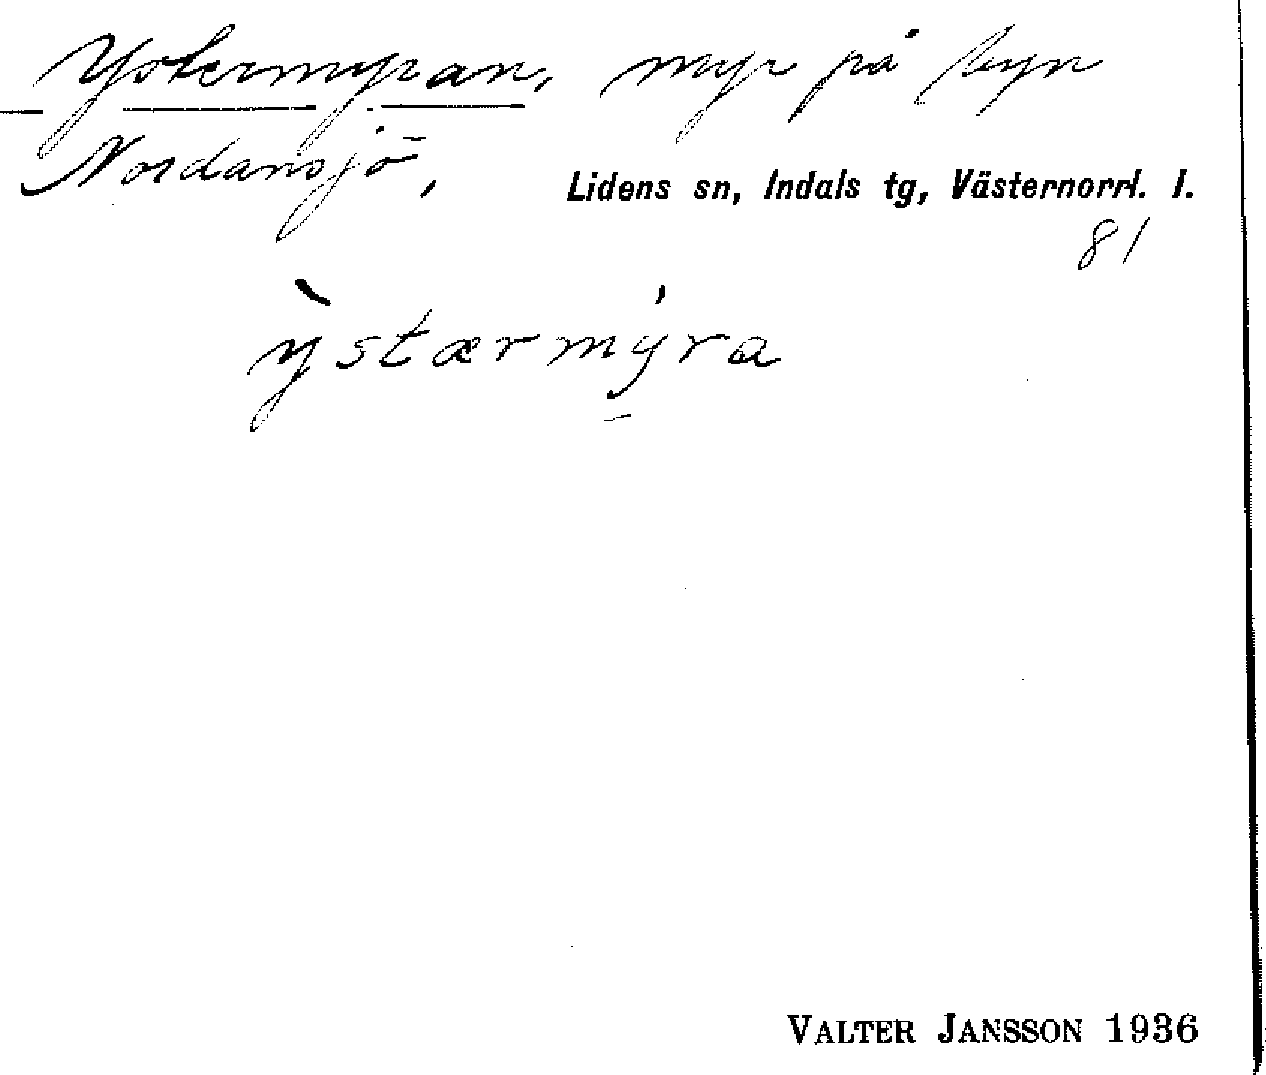 Ystermyran, myr på byn
Nordansjö,
Lidens sn, Indals tg, Västernorrl. l.
81
ỳstærmýra
VALTER JANSSON 1936